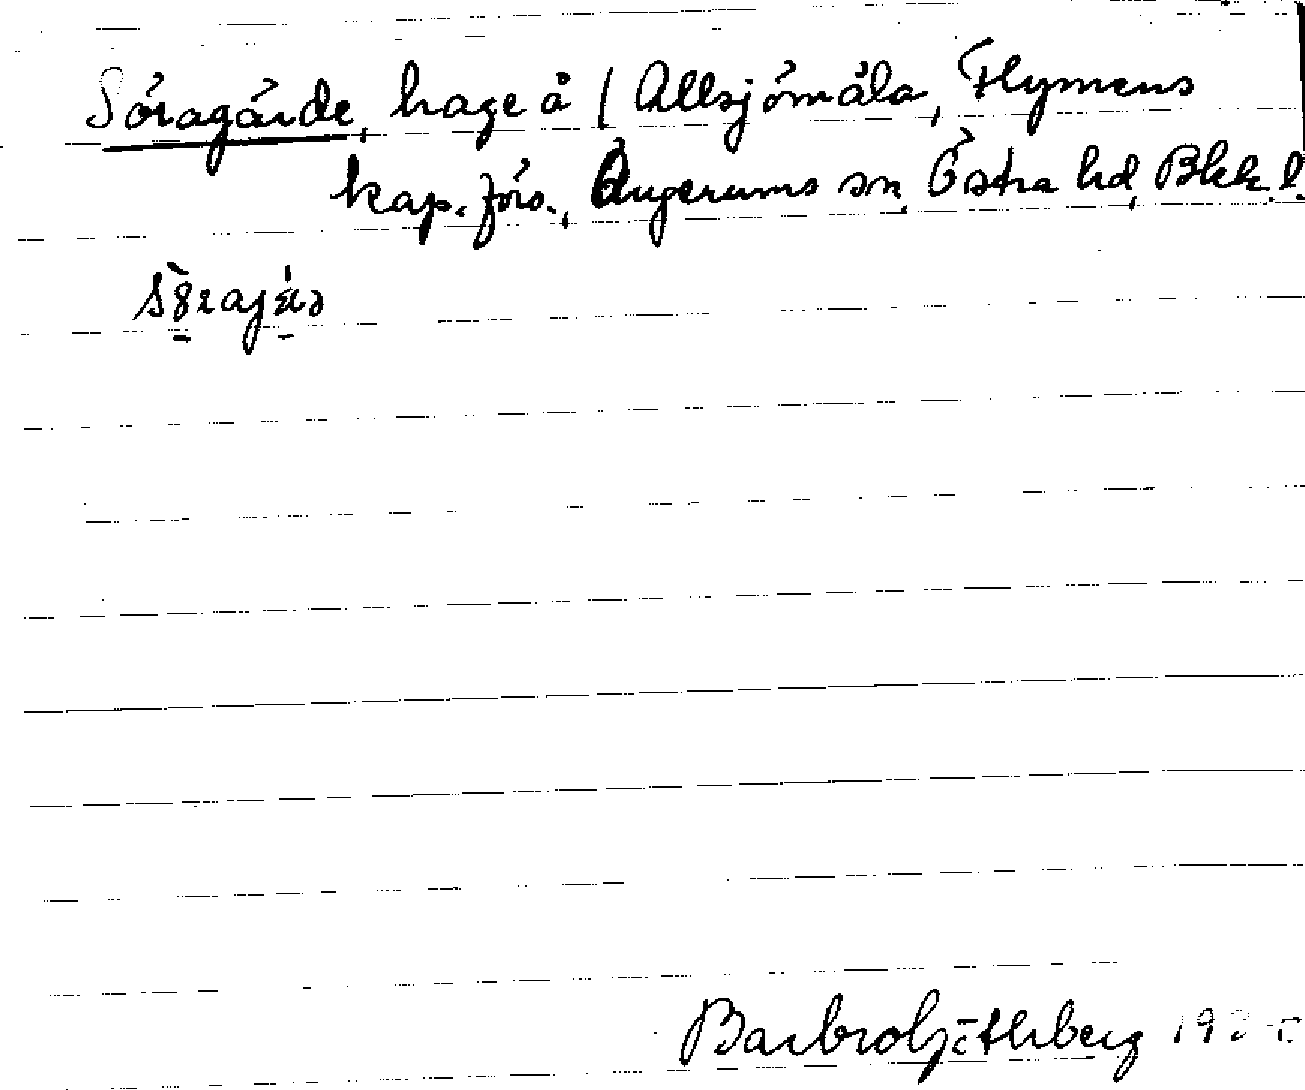 Söragärde, hage å / Allsjömåla, Flymens
kap. förs., Augerums sn, Östra hd, Blek. l.
Barbro Götherberg